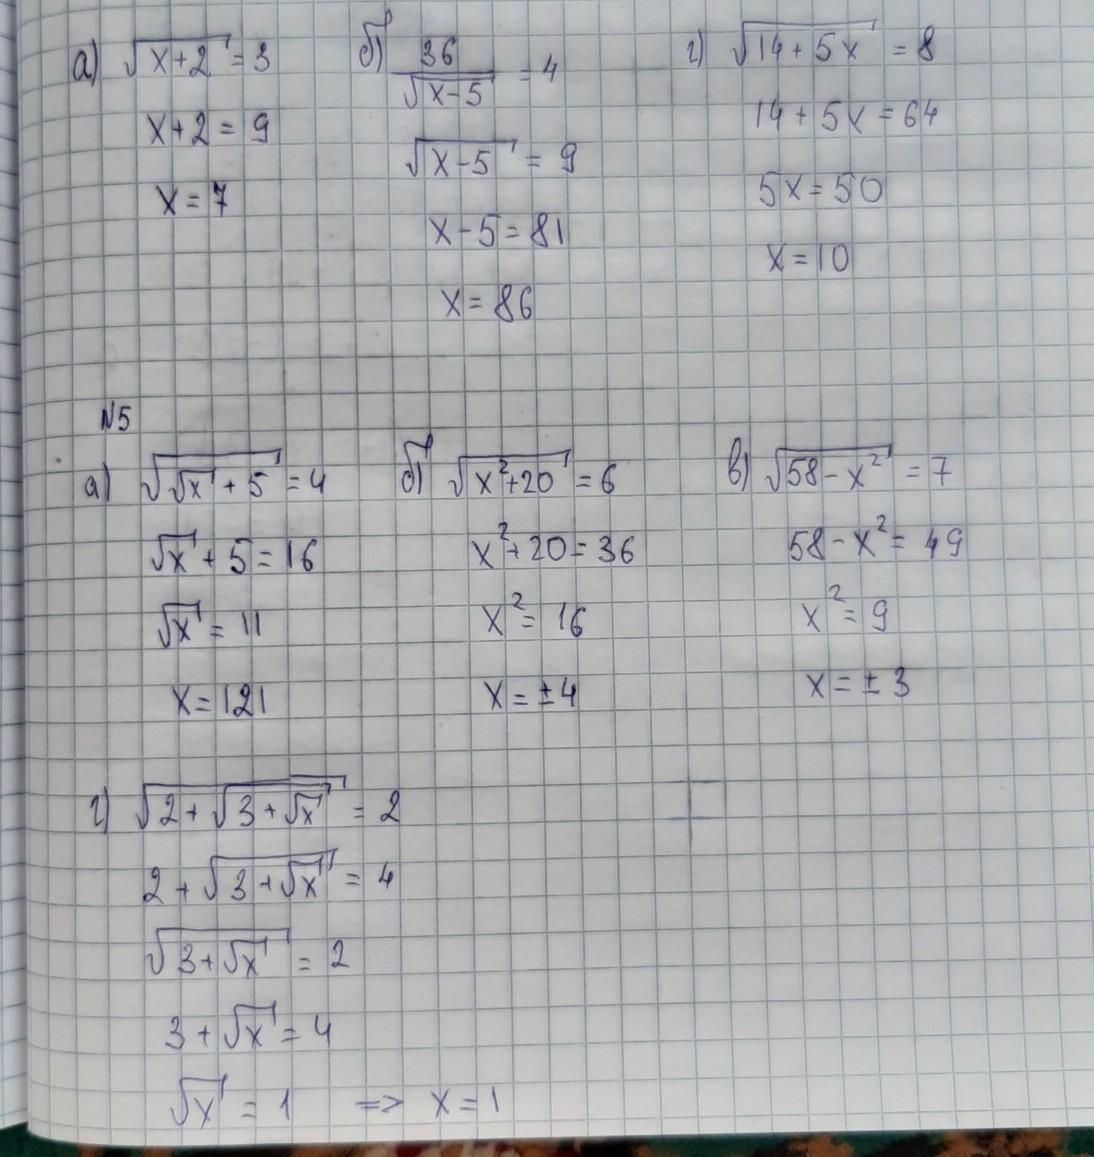 а) √(x+2) = 3
x+2 = 9
x = 7
б) 36/√(x-5) = 4
√(x-5) = 9
x-5 = 81
x = 86
г) √(14+5x) = 8
14+5x = 64
5x = 50
x = 10
№5
а) √(√x + 5) = 4
√x + 5 = 16
√x = 11
x = 121
б) √(x²+20) = 6
x²+20 = 36
x² = 16
x = ±4
в) √(58-x²) = 7
58-x² = 49
x² = 9
x = ±3
г) √(2+√(3+√x)) = 2
2+√(3+√x) = 4
√(3+√x) = 2
3+√x = 4
√x = 1 => x = 1